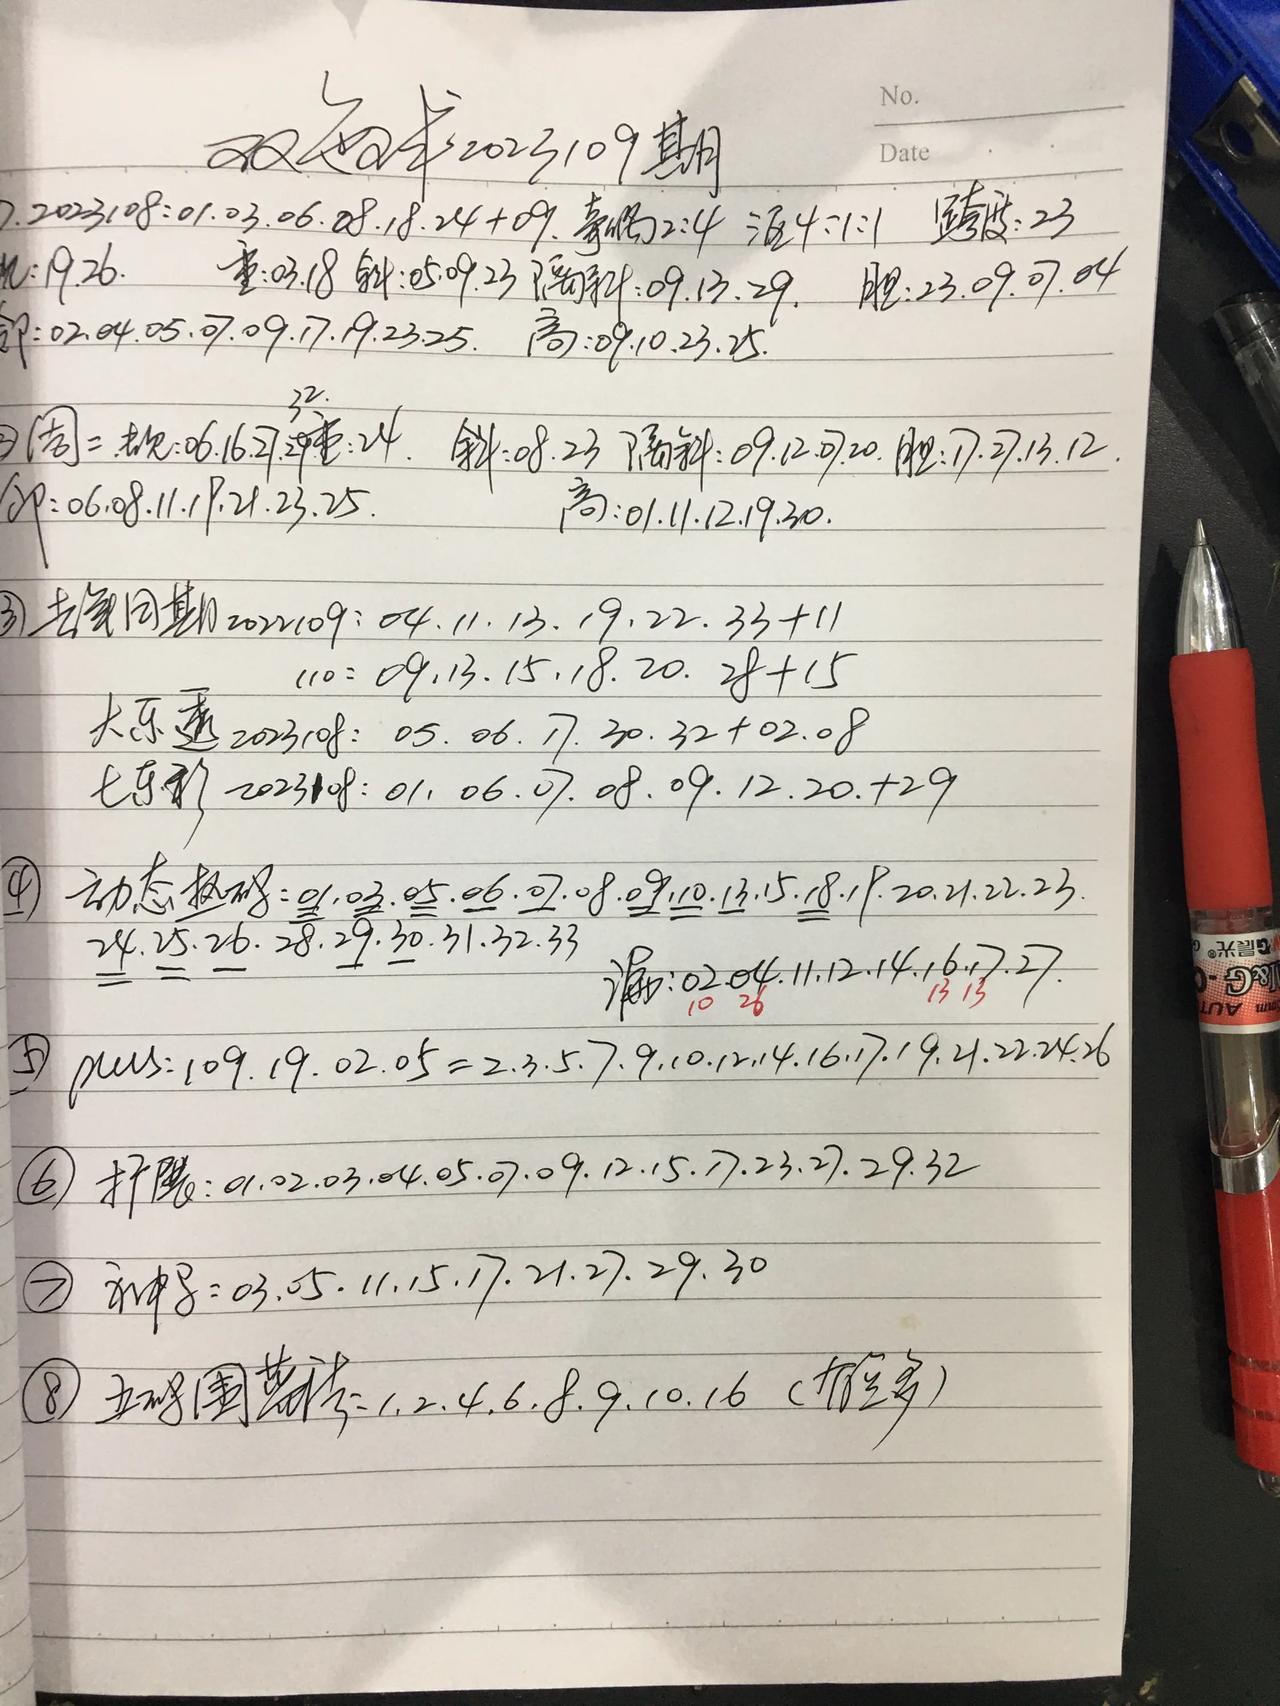 双色球2023109期
No.
Date
.2023108:01.03.06.08.18.24+09. 奇偶2:4 三区4:1:1 跨度:23
:19.26. 重:03.18 斜:05.09.23 隔斜:09.13.29. 胆:23.09.07.04
:02.04.05.07.09.17.19.23.25. 高:09.10.23.25.
32.
② 周=热:06.16.27.29重:24. 斜:08.23 隔斜:09.12.07.20. 胆:17.27.13.12.
:06.08.11.19.21.23.25. 高:01.11.12.19.30.
③ 去年同期2022109: 04.11.13.19.22.33+11
110: 09.13.15.18.20.28+15
大乐透2023108: 05.06.17.30.32+02.08
七乐彩 2023108:01.06.07.08.09.12.20.+29
④ 动态热码:01.03.05.06.07.08.09.10.13.15.18.19.20.21.22.23.
24.25.26.28.29.30.31.32.33
漏:02.04.11.12.14.16.17.27.
10 26 13 13
⑤ plus:109.19.02.05=2.3.5.7.9.10.12.14.16.17.19.21.22.24.26
⑥ :01.02.03.04.05.07.09.12.15.17.23.27.29.32
⑦ :03.05.11.15.17.21.27.29.30
⑧ 五码围蓝法:1.2.4.6.8.9.10.16
M&G晨光®